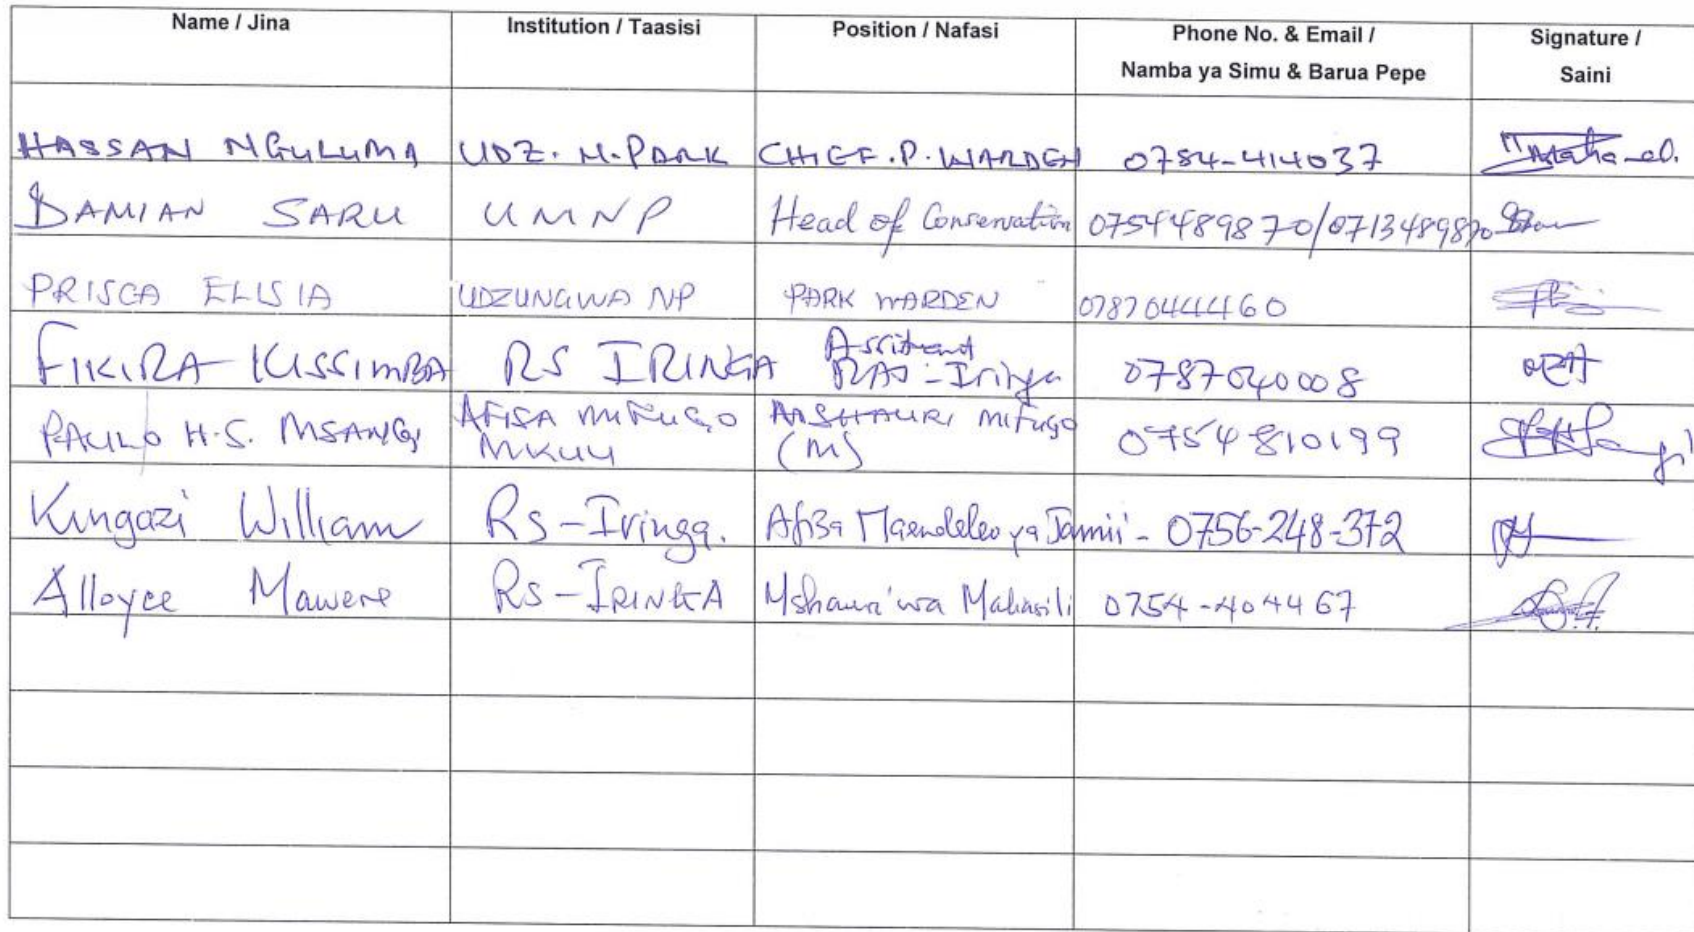 Name / Jina Institution / Taasisi Position / Nafasi Phone No. & Email / Signature /
Namba ya Simu & Barua Pepe Saini
HASSAN NGULUMA UDZ. N. PARK CHIEF. P. WARDEN 0784-414037
DAMIAN SARU UMNP Head of Conservation 0754489870/0713489870
PRISCA ELISIA UDZUNGWA NP PARK WARDEN 0787044460
FIKIRA KISSIMBA RS IRINGA Assistant
RAS - Iringa 0787040008
PAULO H.S. MSANGI AFISA MIFUGO MSHAURI MIFUGO 0754 810199
MKUU (M)
Kingazi William RS - Iringa. Afisa Maendeleo ya Jamii - 0756-248-372
Alloyce Mawere RS - IRINGA Mshauri wa Maliasili 0754-404467